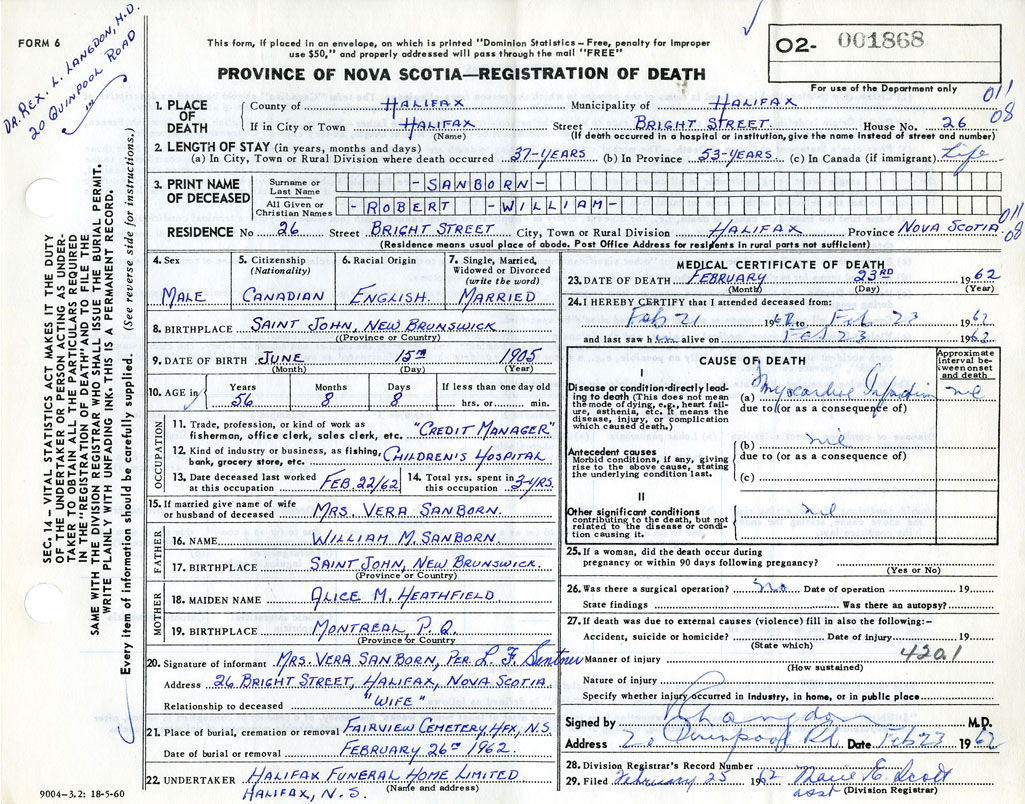 FORM 6
DR. REX. L. LANGDON, M.D.
20 QUINPOOL ROAD
This form, if placed in an envelope, on which is printed "Dominion Statistics – Free, penalty for improper
use $50," and properly addressed will pass through the mail "FREE"
PROVINCE OF NOVA SCOTIA—REGISTRATION OF DEATH
02- 001868
For use of the Department only
011
08
1. PLACE OF DEATH
County of HALIFAX Municipality of HALIFAX
If in City or Town HALIFAX Street BRIGHT STREET House No. 26
(Name) (If death occurred in a hospital or institution, give the name instead of street and number)
2. LENGTH OF STAY (in years, months and days)
(a) In City, Town or Rural Division where death occurred 37-YEARS (b) In Province 53-YEARS (c) In Canada (if immigrant) Life
3. PRINT NAME OF DECEASED
Surname or Last Name -SANBORN-
All Given or Christian Names -ROBERT -WILLIAM-
011
08
RESIDENCE No 26 Street BRIGHT STREET City, Town or Rural Division HALIFAX Province NOVA SCOTIA
(Residence means usual place of abode. Post Office Address for residents in rural parts not sufficient)
SEC. 14 - VITAL STATISTICS ACT MAKES IT THE DUTY
OF THE UNDERTAKER OR PERSON ACTING AS UNDER-
TAKER TO OBTAIN ALL THE PARTICULARS REQUIRED
IN THE "REGISTRATION OF DEATH" AND TO FILE THE
SAME WITH THE DIVISION REGISTRAR WHO SHALL ISSUE THE BURIAL PERMIT.
WRITE PLAINLY WITH UNFADING INK. THIS IS A PERMANENT RECORD.
Every item of information should be carefully supplied. (See reverse side for instructions.)
4. Sex MALE
5. Citizenship (Nationality) CANADIAN
6. Racial Origin ENGLISH.
7. Single, Married, Widowed or Divorced (write the word) MARRIED
8. BIRTHPLACE SAINT JOHN, NEW BRUNSWICK
(Province or Country)
9. DATE OF BIRTH JUNE 15TH 1905
(Month) (Day) (Year)
10. AGE in Years 56 Months 8 Days 8 If less than one day old hrs. or min.
OCCUPATION
11. Trade, profession, or kind of work as
fisherman, office clerk, sales clerk, etc. "CREDIT MANAGER"
12. Kind of industry or business, as fishing,
bank, grocery store, etc. CHILDREN'S HOSPITAL
13. Date deceased last worked at this occupation FEB. 22/62
14. Total yrs. spent in this occupation 3-YRS.
15. If married give name of wife
or husband of deceased MRS. VERA SANBORN.
FATHER
16. NAME WILLIAM M. SANBORN.
17. BIRTHPLACE SAINT JOHN, NEW BRUNSWICK.
(Province or Country)
MOTHER
18. MAIDEN NAME ALICE M. HEATHFIELD
19. BIRTHPLACE MONTREAL P.Q.
(Province or Country)
20. Signature of informant MRS. VERA SANBORN, PER L F
Address 26 BRIGHT STREET, HALIFAX, NOVA SCOTIA
Relationship to deceased "WIFE"
21. Place of burial, cremation or removal FAIRVIEW CEMETERY, HFX, N.S.
Date of burial or removal FEBRUARY 26TH 1962.
22. UNDERTAKER HALIFAX FUNERAL HOME LIMITED
(Name and address)
HALIFAX, N.S.
9004-3.2: 18-5-60
MEDICAL CERTIFICATE OF DEATH
23. DATE OF DEATH FEBRUARY 23RD 1962
(Month) (Day) (Year)
24. I HEREBY CERTIFY that I attended deceased from:
Feb 21 1962 to Feb 23 1962
and last saw him alive on Feb 23 1962
CAUSE OF DEATH
Approximate interval between onset and death
I
Disease or condition directly leading to death (This does not mean the mode of dying, e.g., heart failure, asthenia, etc. It means the disease, injury, or complication which caused death.)
(a) Myocardial Infarction nil
due to (or as a consequence of)
Antecedent causes
Morbid conditions, if any, giving rise to the above cause, stating the underlying condition last.
(b) nil
due to (or as a consequence of)
(c)
II
Other significant conditions
contributing to the death, but not related to the disease or condition causing it.
nil
25. If a woman, did the death occur during
pregnancy or within 90 days following pregnancy?
(Yes or No)
26. Was there a surgical operation? no Date of operation 19
State findings Was there an autopsy?
27. If death was due to external causes (violence) fill in also the following:-
Accident, suicide or homicide? Date of injury 19
(State which)
420.1
Manner of injury
(How sustained)
Nature of injury
Specify whether injury occurred in industry, in home, or in public place
Signed by R Langdon M.D.
Address 20 Quinpool Rd. Date Feb 23 1962
28. Division Registrar's Record Number
29. Filed February 25 1962 Marie E. Scott
asst (Division Registrar)